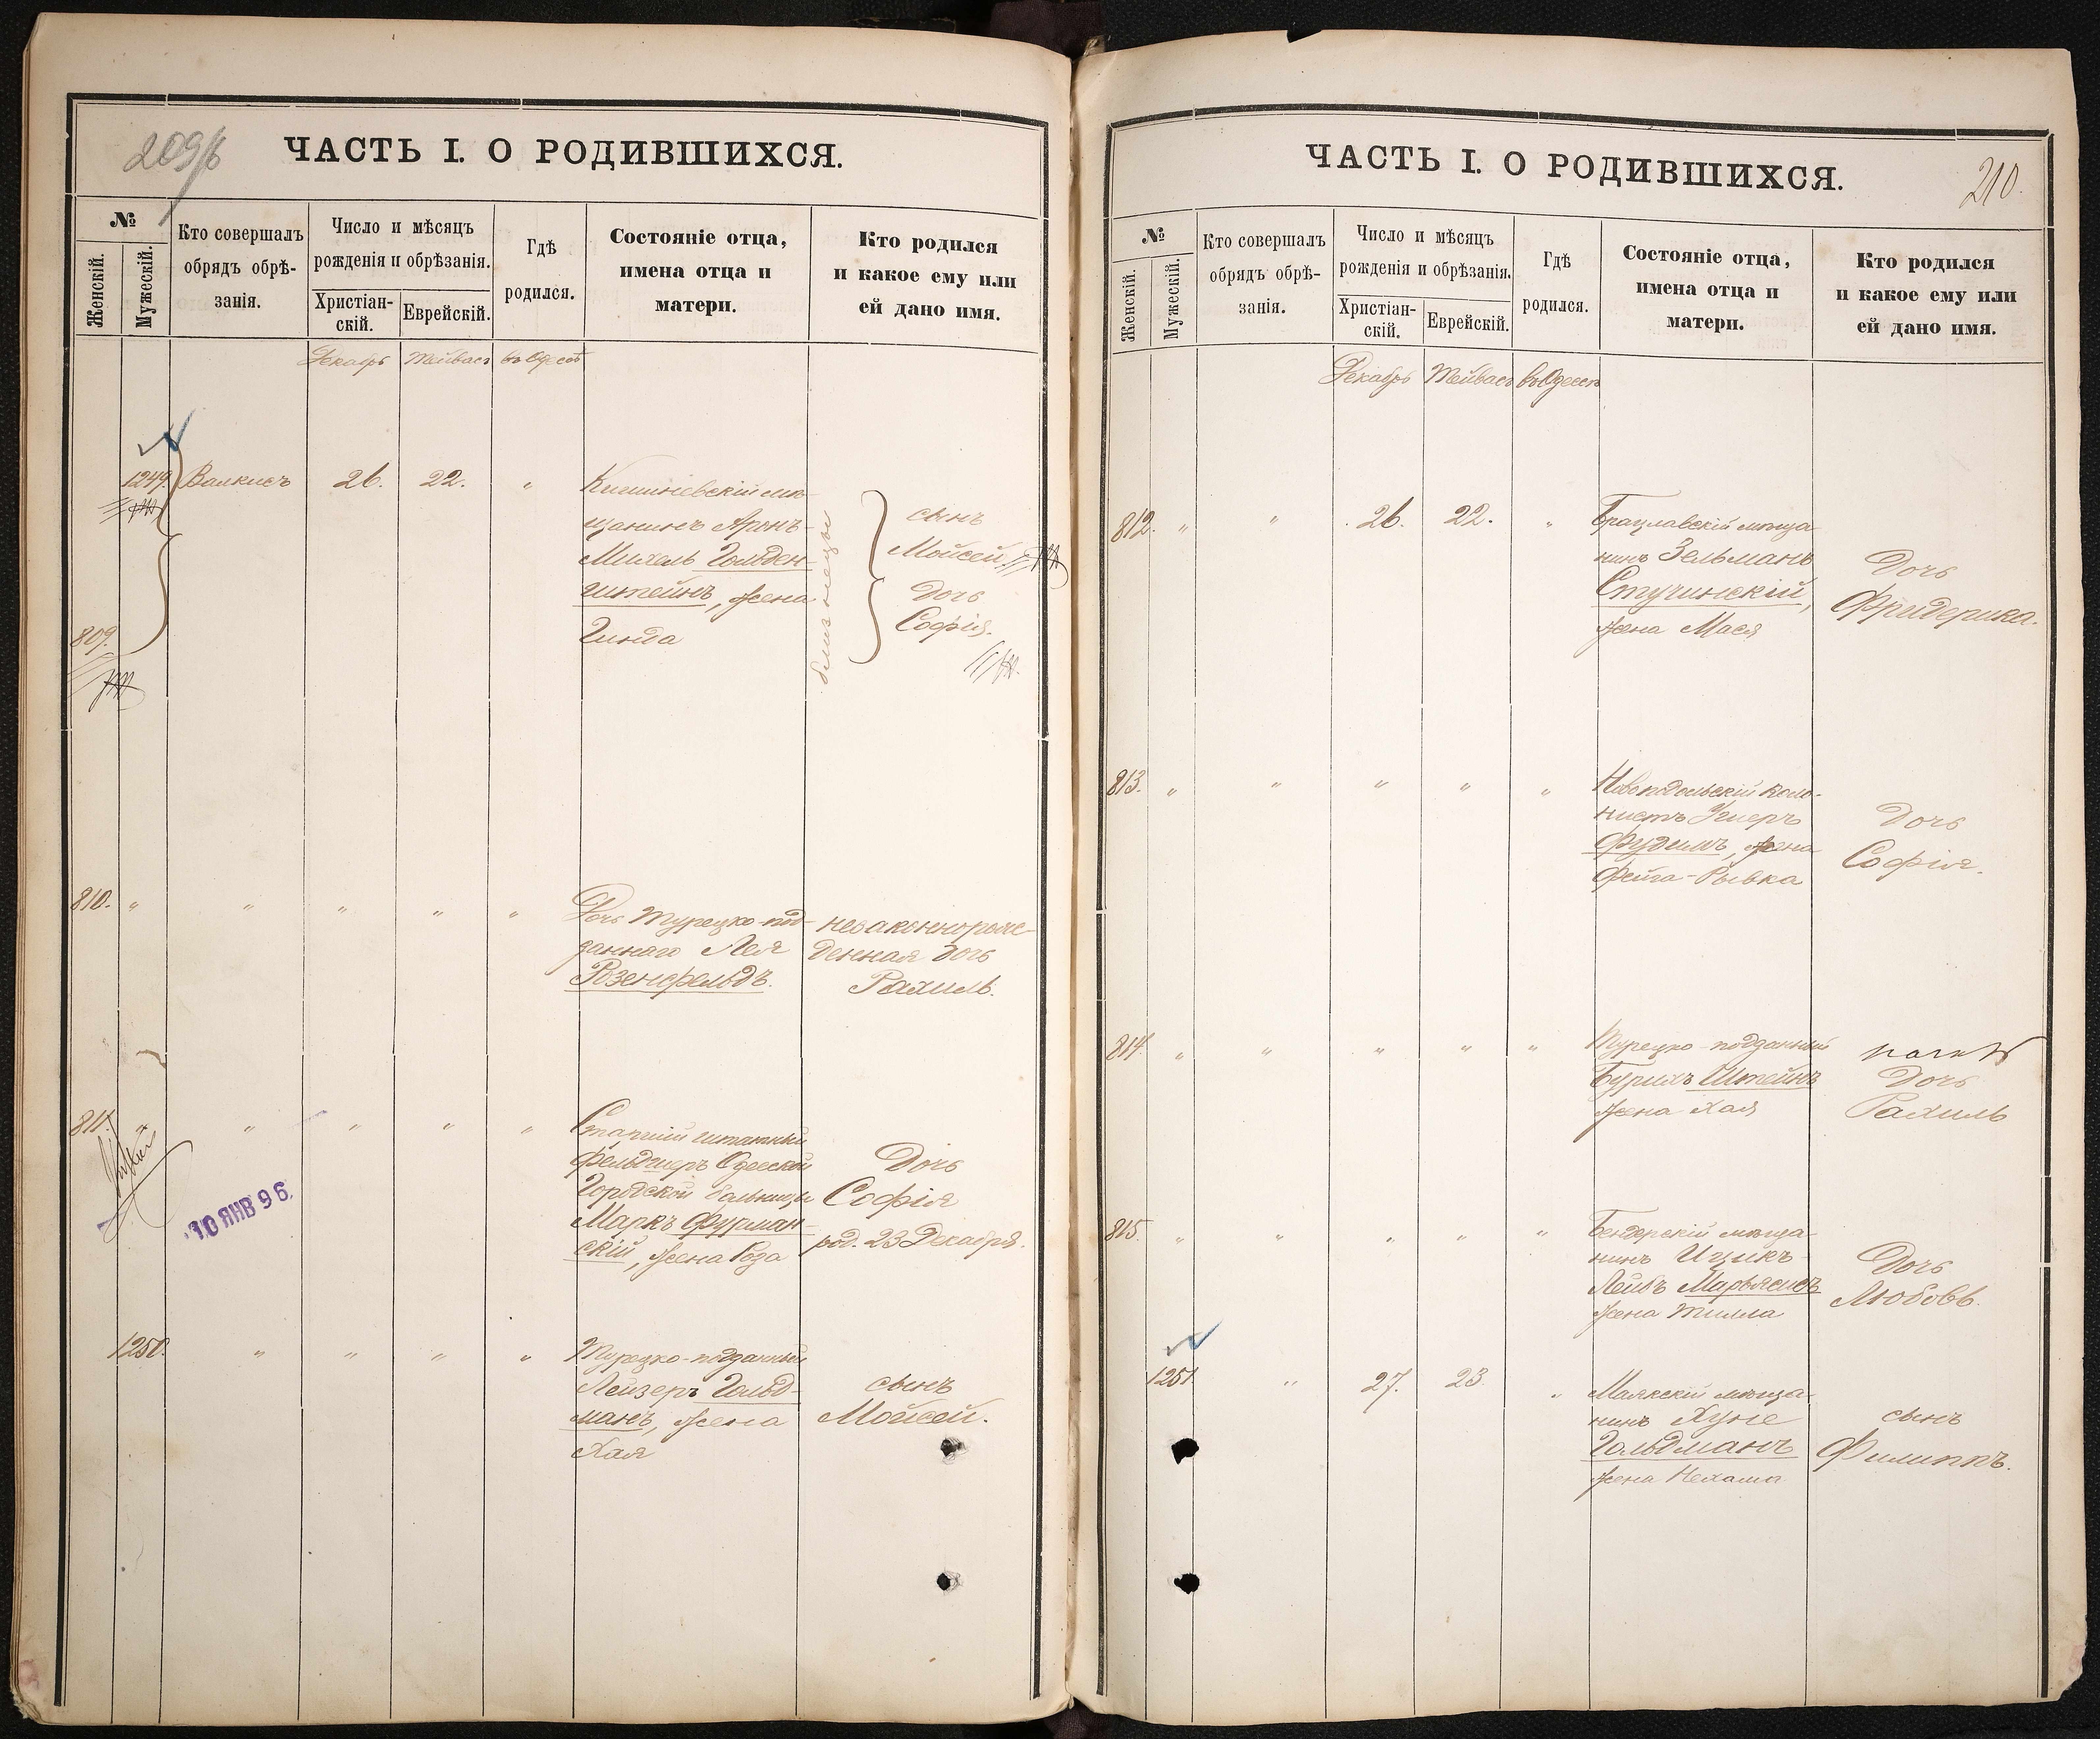 209/б
ЧАСТЬ I. О РОДИВШИХСЯ.
№
Женскій.
Мужескій.
Кто совершалъ
обрядъ обрѣ-
занія.
Число и мѣсяцъ
рожденія и обрѣзанія.
Христіан-
скій.
Еврейскій.
Гдѣ
родился.
Состояніе отца,
имена отца и
матери.
Кто родился
и какое ему или
ей дано имя.
Декабрь Тейвасъ въ Одессѣ
1249. Валкисъ 26. 22. "
809.
Кишиневскій мѣ-
щанинъ Аронъ-
Михель Гольден-
штейнъ, жена
Гинда
близнецы
сынъ
Мойсей.
Дочь
Софія.
810. " " " " "
Дочь Турецко-под-
даннаго Лея
Розенфельдъ.
незаконнорож-
денная дочь
Рахиль.
811. " " " " "
10 ЯНВ 96.
Старшій штатный
фельдшеръ Одесской
Городской больницы
Маркъ Фурман-
скій, жена Роза
Дочь
Софія
род. 23 Декабря.
1250. " " " "
Турецко-подданный
Лейзеръ Гольд-
манъ, жена
Хая
сынъ
Мойсей.
ЧАСТЬ I. О РОДИВШИХСЯ.
210.
№
Женскій.
Мужескій.
Кто совершалъ
обрядъ обрѣ-
занія.
Число и мѣсяцъ
рожденія и обрѣзанія.
Христіан-
скій.
Еврейскій.
Гдѣ
родился.
Состояніе отца,
имена отца и
матери.
Кто родился
и какое ему или
ей дано имя.
Декабрь Тейвасъ въ Одессѣ
812. " " 26. 22. "
Брацлавскій мѣща-
нинъ Зельманъ
Стучинскій,
жена Мася
Дочь
Фридерика.
813. " " " " "
Новоподольскій коло-
нистъ Ушеръ
Фудимъ, жена
Фейга-Рывка
Дочь
Софія.
814. " " " " "
Турецко-подданный
Бурихъ Штейнъ
жена Хая
Дочь
Рахиль
815. " " " " "
Бендерскій мѣща-
нинъ Ицикъ-
Лейбъ
жена Тилла
Дочь
Любовь.
1251. " 27. 23. "
Маякскій мѣща-
нинъ Хуне
Гольдманъ
жена Нехама
сынъ
Филиппъ.